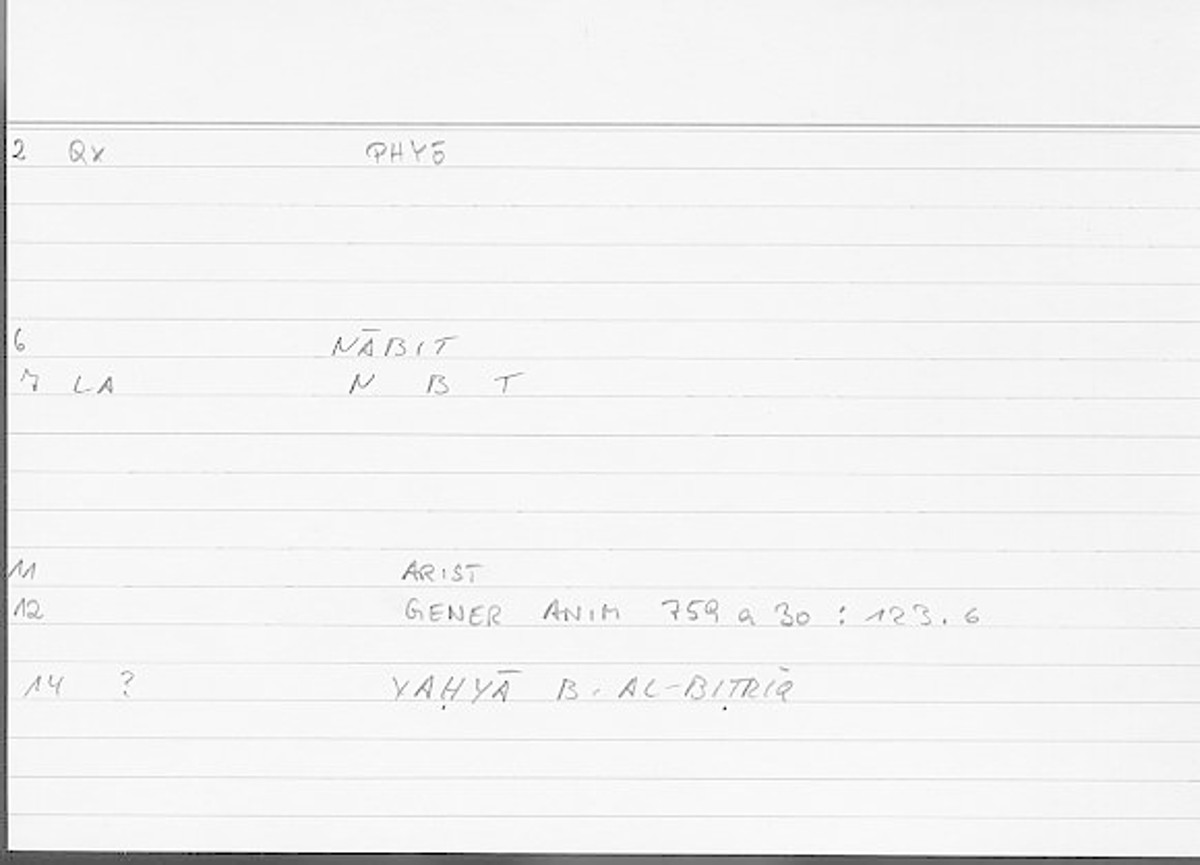 2 Qx PHYŌ
6 NĀBIT
7 LA N B T
11 ARIST
12 GENER ANIM 759 a 30 : 123.6
14 ? YAḤYĀ B. AL-BIṬRĪQ